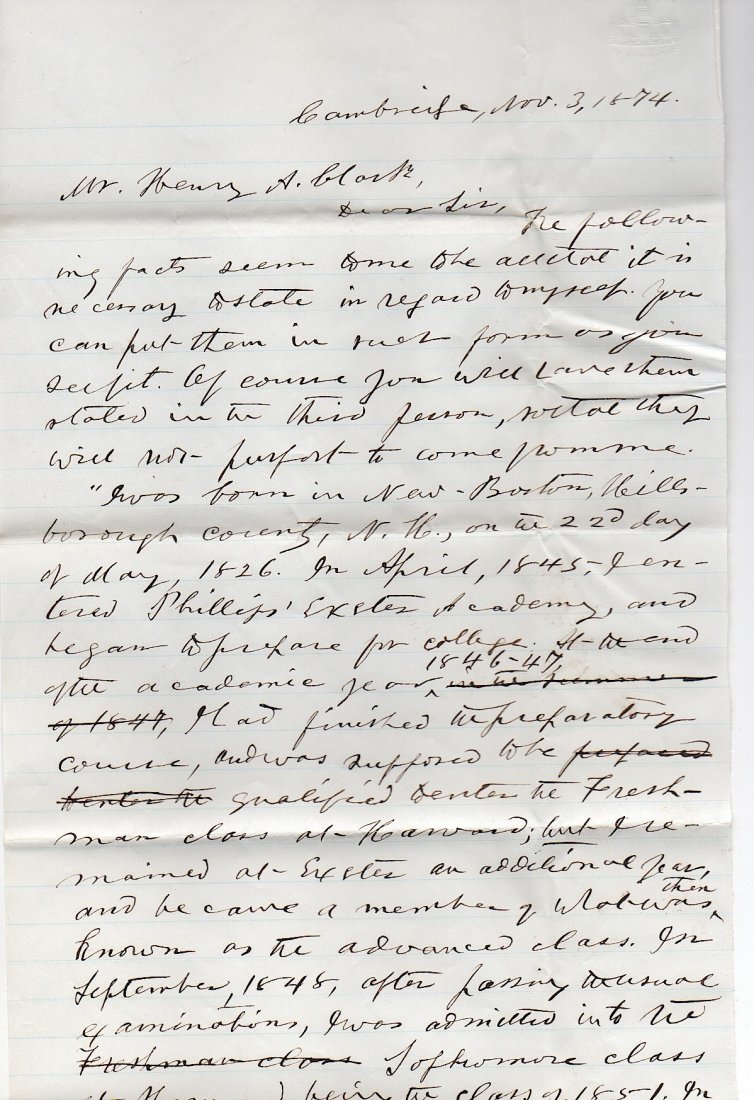 Cambridge, Nov. 3, 1874.
Mr. Henry A. Clark,
Dear Sir,
The follow-
ing facts seem to me to be all that it is
necessary to state in regard to myself. You
can put them in such form as you
see fit. Of course you will have them
stated in the third person, so that they
will not purport to come from me.
"I was born in New-Boston, Hills-
borough county, N. H., on the 22d day
of May, 1826. In April, 1845, I en-
tered Phillips' Exeter Academy, and
began to prepare for college. At the end
of the academic year 1846-47, in the summer
of 1847, I had finished the preparatory
course, and was supposed to be prepared
to enter the qualified to enter the Fresh-
man class at Harvard; but I re-
mained at Exeter an additional year,
and became a member of what was then
known as the advanced class. In
September, 1848, after passing the usual
examinations, I was admitted into the
Freshman class Sophomore class
being the class of 1851. In